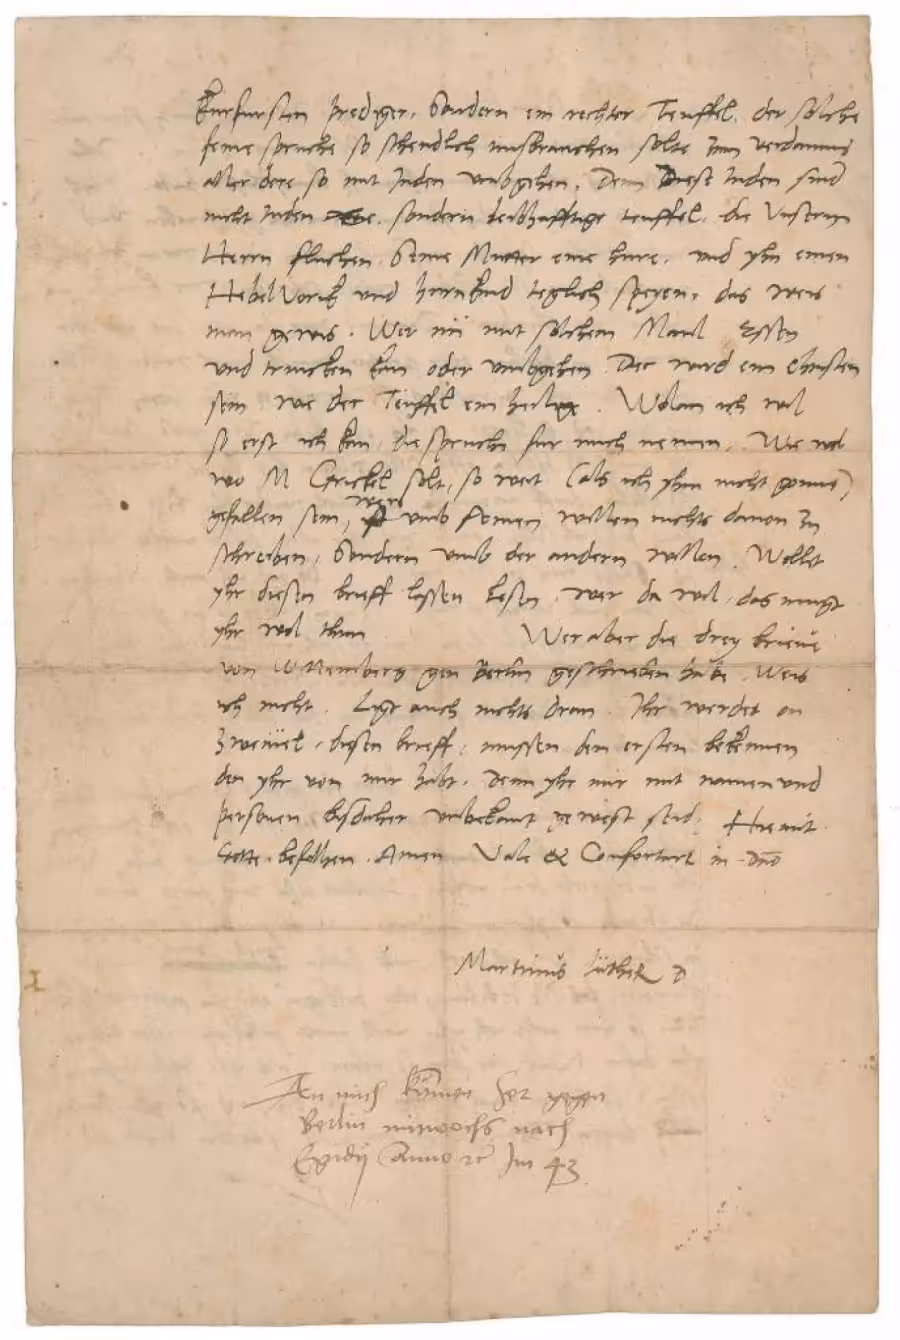 kurfursten prediger, sondern ein rechter Teuffel, der solche
feine spruche so schendlich misbrauchen solte zum verdamnis
aller dere so mit Juden umbgehen, Denn Diese Juden sind
nicht Juden sondern leibhafftige teuffel, die Unserm
Herrn fluchen, seine Mutter eine hure, und yhn einen
Hebel Vorik und hurnkind teglich speyen, das weis
man gewis. Wer nu mit solchem Maul Essen
und trincken kan oder umbgehen Der wird ein Christen
sein wie der Teuffel ein heilige. Wolan ich wil
so erst ich kan, die spruche fur mich nemen, Wie wol
wo M Grickel solt, so weit (als ich yhm nicht gonne)
gefallen sein, wer umb seinen willen nichts davon zu
schreiben, sondern umb der andern willen. Wollet
yhr diesen brieff lassen lesen, wer da wil, das mugt
yhr wol thun Wer aber die drey brieve
von Wittemberg gen Berlin geschrieben habe, Weis
ich nicht. Ligt auch nichts dran. Ihr werdet on
zweivel, diesen brieff, mussen den ersten bekennen
den yhr von mir habt, Denn yhr mir mit namen und
personen, bisdaher unbekant gewest seid, Hie mit
Gotte befolhen, Amen Vale & Confortare in dno
Martinus Luther D
An mich kumen her gegen
Berlin mitwochs nach
Egidij Anno rc Im 43